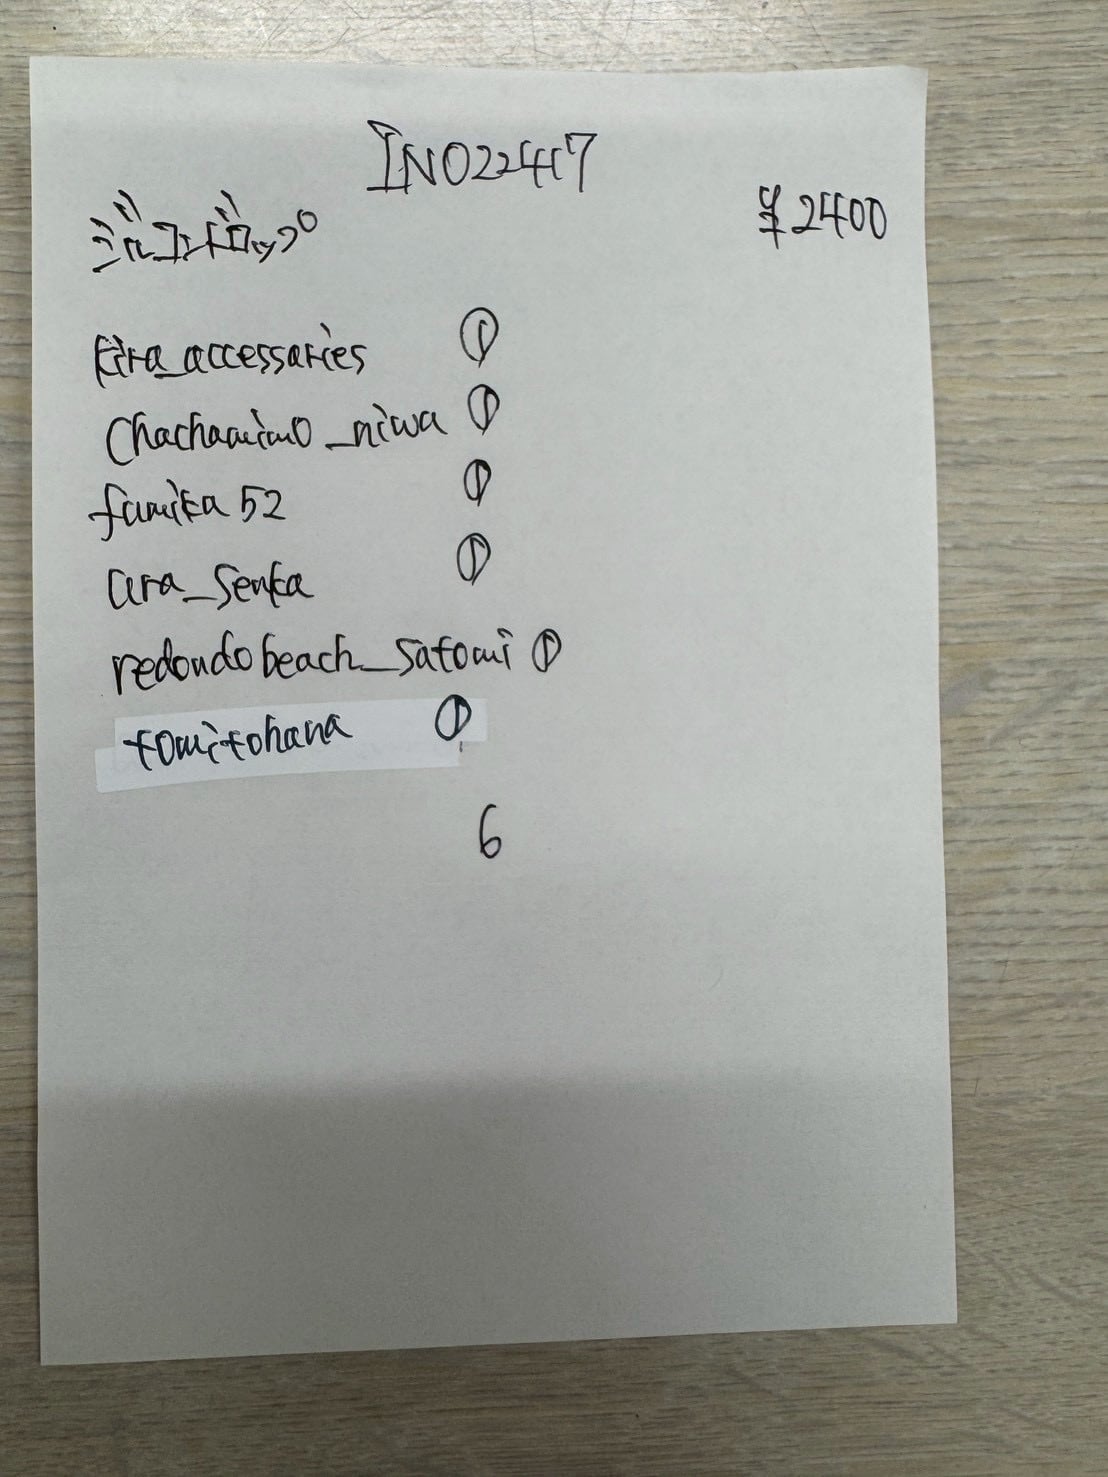 INO22417
¥2400
ジルコンドロップ
kira_accessaries ①
Chachamimo_niwa ①
fumika52 ①
ara_senka ①
redondobeach_satomi ①
tomitohana ①
6